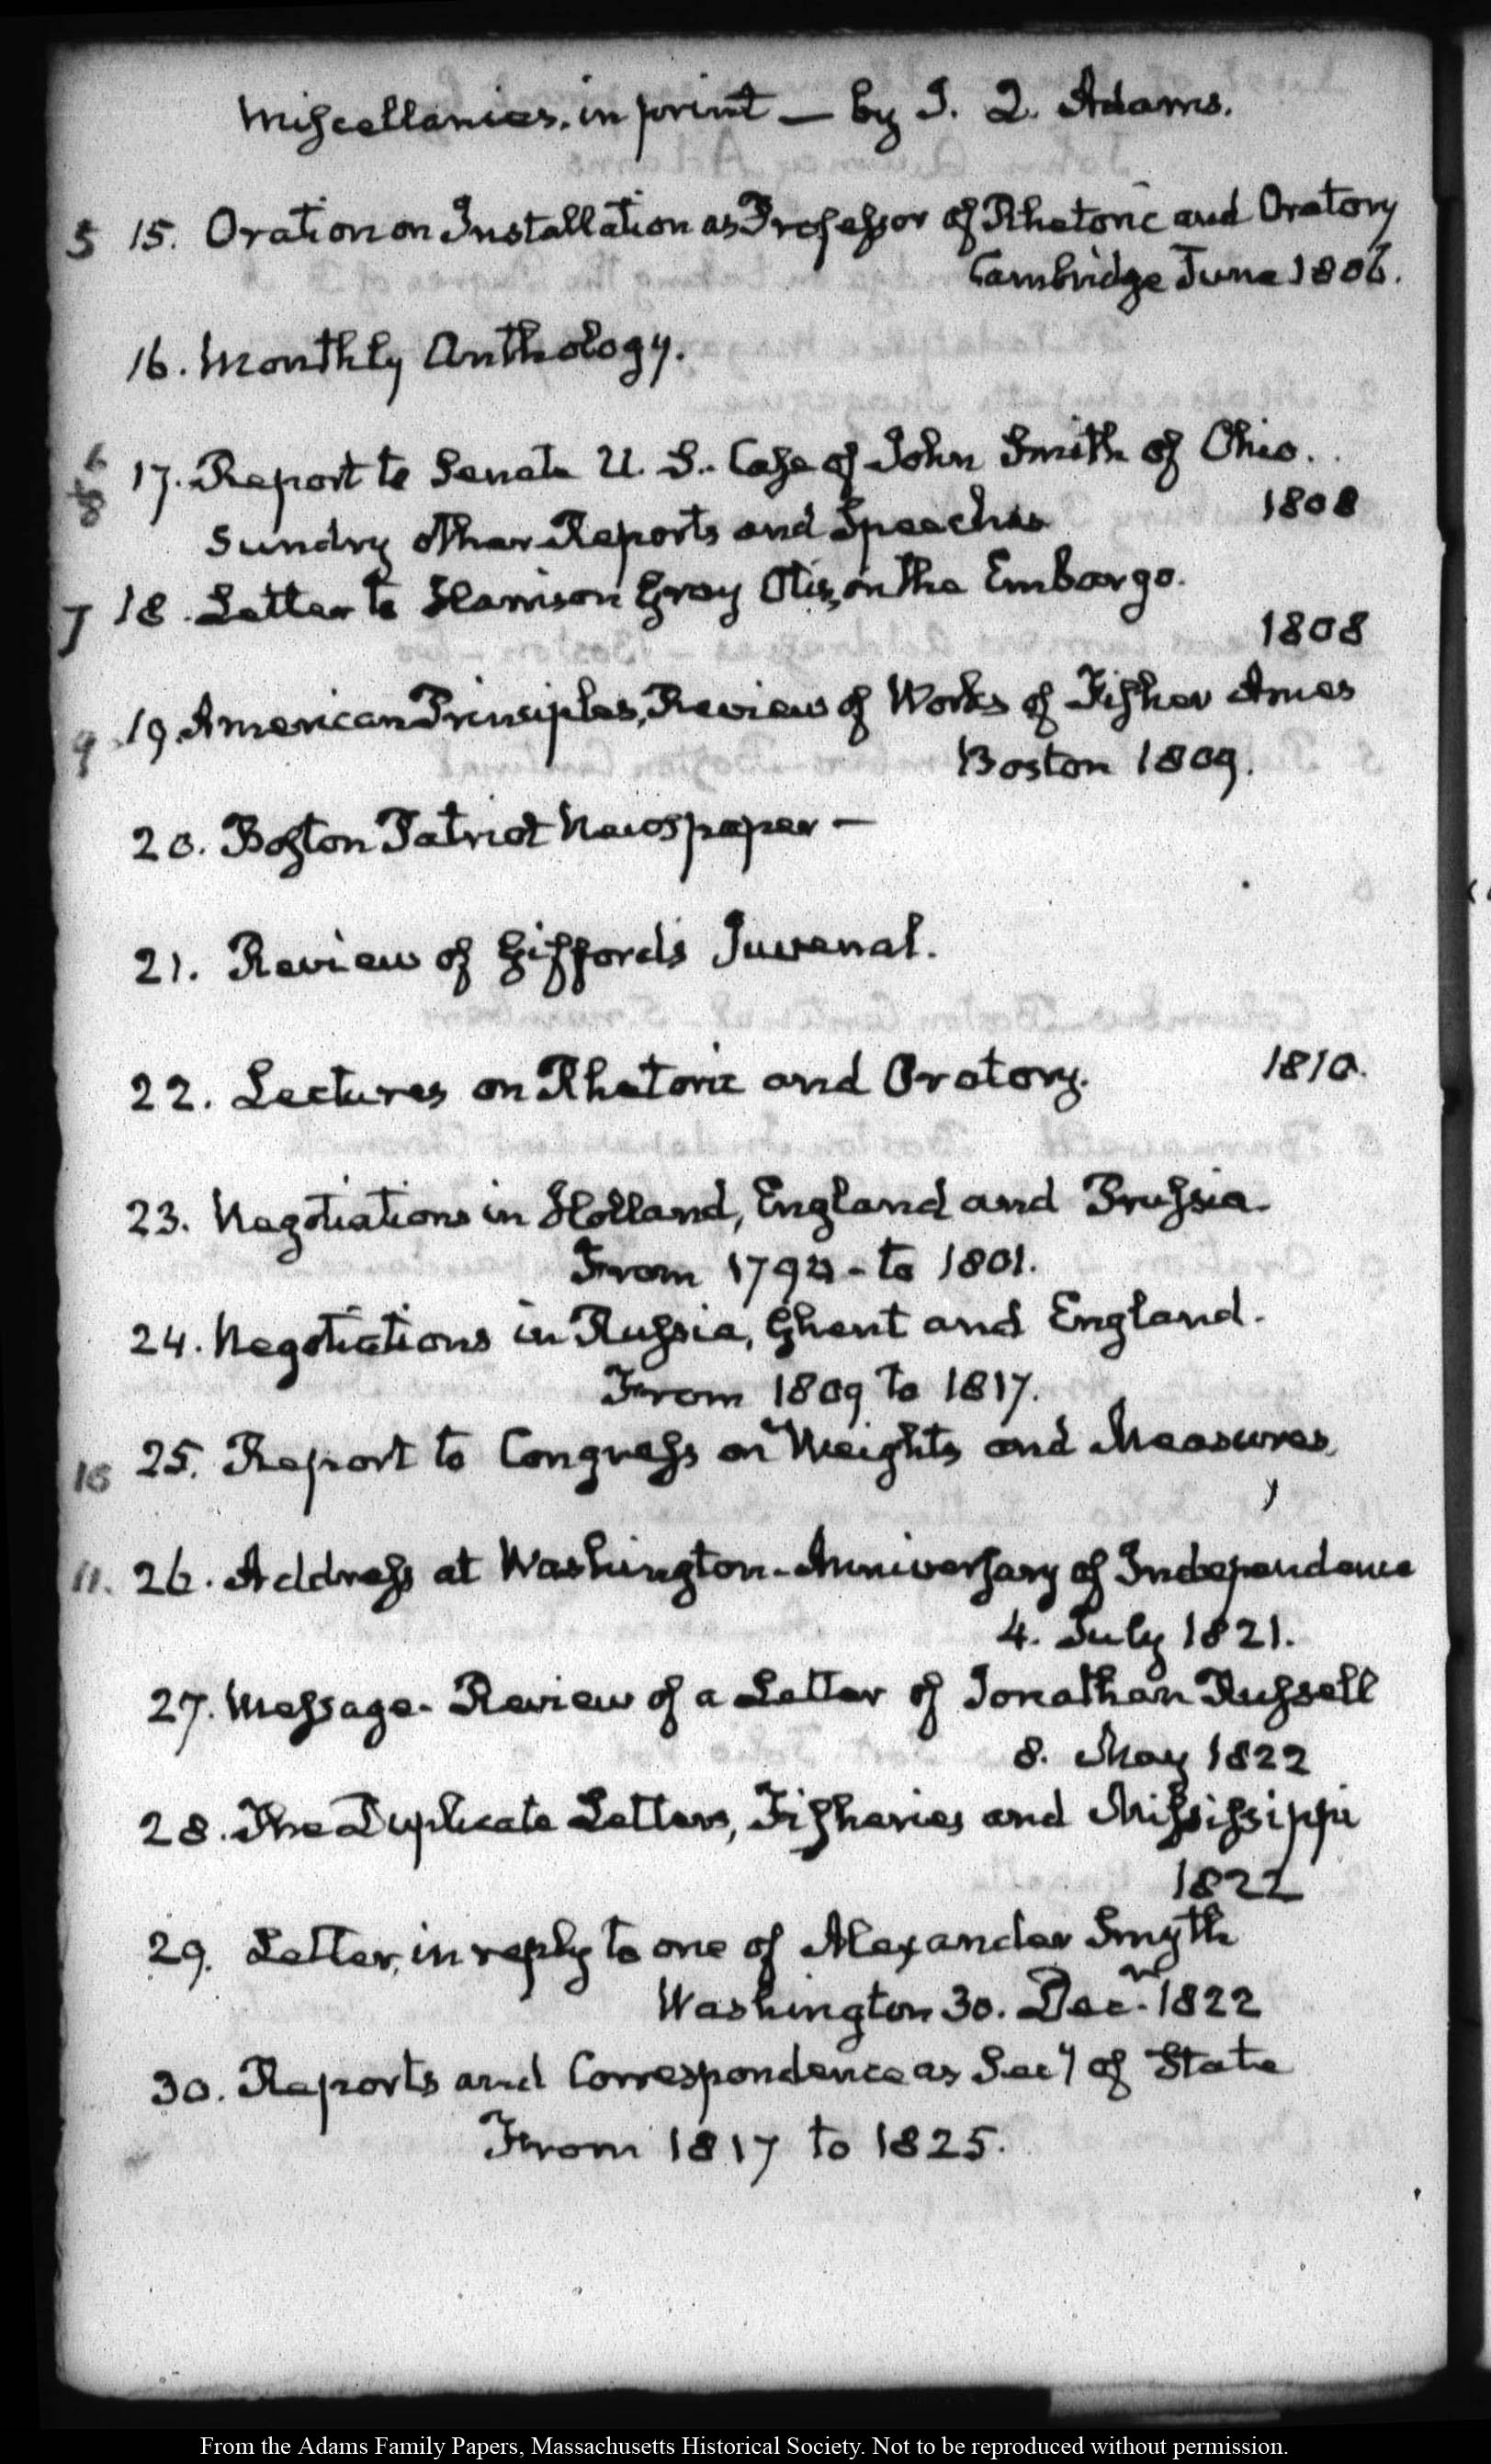 Miscellanies, in print — by J. Q. Adams.
5 15. Oration on Installation as Professor of Rhetoric and Oratory
Cambridge June 1806.
16. Monthly Anthology.
6 17. Report to Senate U. S. Case of John Smith of Ohio.
8 1808
Sundry other Reports and Speeches
7 18. Letter to Harrison Gray Otis, on the Embargo.
1808
9 19. American Principles, Review of Works of Fisher Ames
Boston 1809.
20. Boston Patriot Newspaper —
21. Review of Gifford's Juvenal.
22. Lectures on Rhetoric and Oratory. 1810.
23. Negotiations in Holland, England and Prussia.
From 1794 - to 1801.
24. Negotiations in Russia, Ghent and England.
From 1809 to 1817.
10 25. Report to Congress on Weights and Measures,
11. 26. Address at Washington - Anniversary of Independence
4. July 1821.
27. Message - Review of a Letter of Jonathan Russell
8. May 1822
28. The Duplicate Letters, Fisheries and Mississippi
1822
29. Letter, in reply to one of Alexander Smyth
Washington 30. Decr. 1822
30. Reports and Correspondence as Secy of State
From 1817 to 1825.
From the Adams Family Papers, Massachusetts Historical Society. Not to be reproduced without permission.